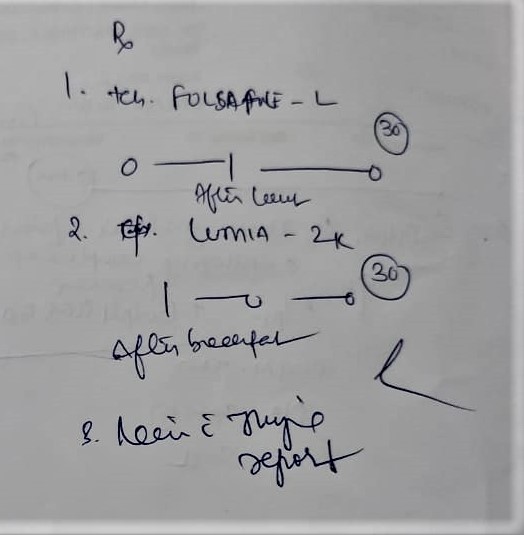 Rx
1. tab. FOLSAFNE - L
0 — 1 — 0 30
After lunch
2. Cap. LUMIA - 2K
1 — 0 — 0 30
After breakfast
3. c
report